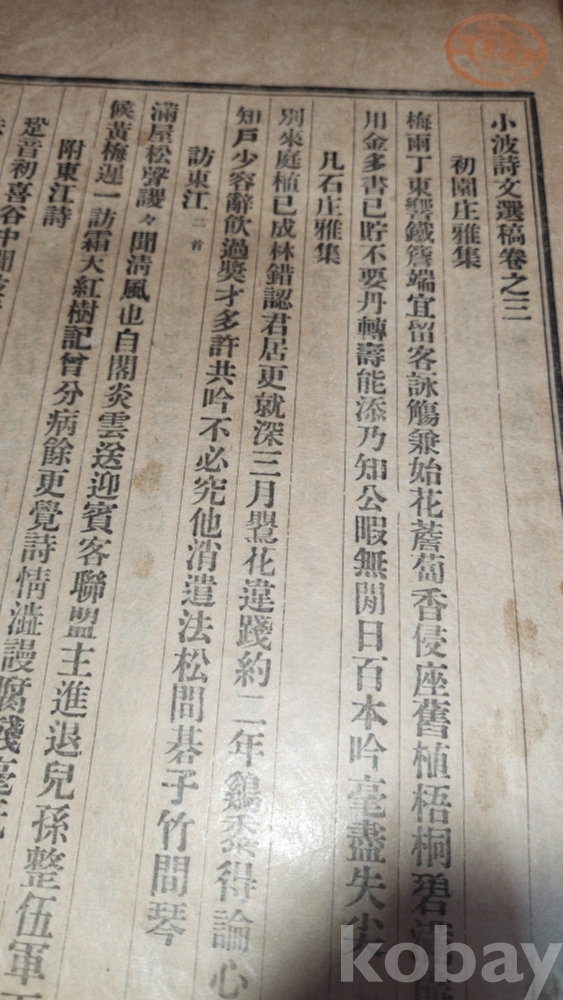 小波詩文選稿卷之三
初園庄雅集
梅雨丁東響鐵簷端宜留客詠觴兼始花薝蔔香侵座舊植梧桐碧
用金多書已貯不要丹轉壽能添乃知公暇無閒日百本吟毫盡失尖
凡石庄雅集
別來庭植已成林錯認君居更就深三月鸎花違踐約二年鷄黍得論心
知戶少容辭飮過奬才多許共吟不必究他消遣法松間碁子竹間琴
訪東江 二首
滿屋松聲謖々聞清風也自閣炎雲送迎賓客聯盟主進退兒孫整伍軍
候黃梅遲一訪霜天紅樹記曾分病餘更覺詩情澁謾腐殘毫
附東江詩
跫音初喜谷中聞
kobay